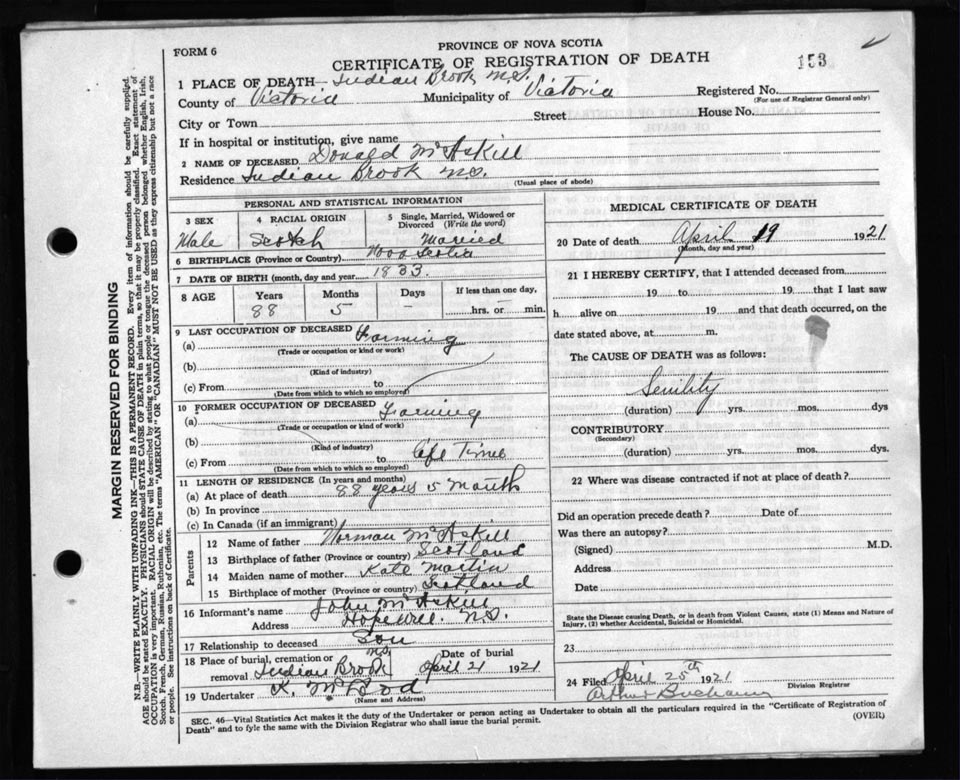 PROVINCE OF NOVA SCOTIA
FORM 6
CERTIFICATE OF REGISTRATION OF DEATH
153
1 PLACE OF DEATH— Indian Brook N.S.
County of Victoria Municipality of Victoria Registered No.
(For use of Registrar General only)
City or Town Street House No.
If in hospital or institution, give name
2 NAME OF DECEASED Donald McAskill
Residence Indian Brook N.S.
(Usual place of abode)
PERSONAL AND STATISTICAL INFORMATION
3 SEX 4 RACIAL ORIGIN 5 Single, Married, Widowed or Divorced (Write the word)
Male Scotch Married
6 BIRTHPLACE (Province or Country) Nova Scotia
7 DATE OF BIRTH (month, day and year) 1833.
8 AGE Years Months Days If less than one day,
88 5 hrs. or min.
9 LAST OCCUPATION OF DECEASED
(a) Farming
(Trade or occupation or kind or work)
(b)
(Kind of industry)
(c) From to
(Date from which to which so employed)
10 FORMER OCCUPATION OF DECEASED
(a) Farming
(Trade or occupation or kind of work)
(b)
(Kind of industry)
(c) From to Life Time
(Date from which to which so employed)
11 LENGTH OF RESIDENCE (In years and months)
(a) At place of death 88 years 5 month
(b) In province
(c) In Canada (if an immigrant)
Parents
12 Name of father Norman McAskill
13 Birthplace of father (Province or country) Scotland
14 Maiden name of mother Kate Martin
15 Birthplace of mother (Province or country) Scotland
16 Informant's name John McAskill
Address Hopewell N.S.
17 Relationship to deceased Son
18 Place of burial, cremation or removal Indian Brook N.S. Date of burial April 21 1921
19 Undertaker K. McLeod
(Name and Address)
MEDICAL CERTIFICATE OF DEATH
20 Date of death April 19 1921
(Month, day and year)
21 I HEREBY CERTIFY, that I attended deceased from
19 to 19 that I last saw
h alive on 19 and that death occurred, on
date stated above, at m.
The CAUSE OF DEATH was as follows:
Senility
(duration) yrs. mos. dys
CONTRIBUTORY
(Secondary)
(duration) yrs. mos. dys.
22 Where was disease contracted if not at place of death?
Did an operation precede death? Date of
Was there an autopsy?
(Signed) M.D.
Address
Date
State the Disease causing Death, or in death from Violent Causes, state (1) Means and Nature of
Injury, (2) whether Accidental, Suicidal or Homicidal.
23
24 Filed April 25th 1921
Arthur Buchanan Division Registrar
SEC. 46—Vital Statistics Act makes it the duty of the Undertaker or person acting as Undertaker to obtain all the particulars required in the "Certificate of Registration of
Death" and to fyle the same with the Division Registrar who shall issue the burial permit.
(OVER)
MARGIN RESERVED FOR BINDING
N.B.—WRITE PLAINLY WITH UNFADING INK—THIS IS A PERMANENT RECORD. Every item of information should be carefully supplied.
AGE should be stated EXACTLY. PHYSICIANS should STATE CAUSE OF DEATH in plain terms, so that it may be properly classified. Exact statement of
OCCUPATION is very important. RACIAL ORIGIN will be described by stating to what people or tongue the deceased person belonged whether English, Irish,
Scotch, French, German, Russian, Ruthenian, etc. The terms "AMERICAN" OR "CANADIAN" MUST NOT BE USED as they express citizenship but not a race
or people. See instructions on back of Certificate.